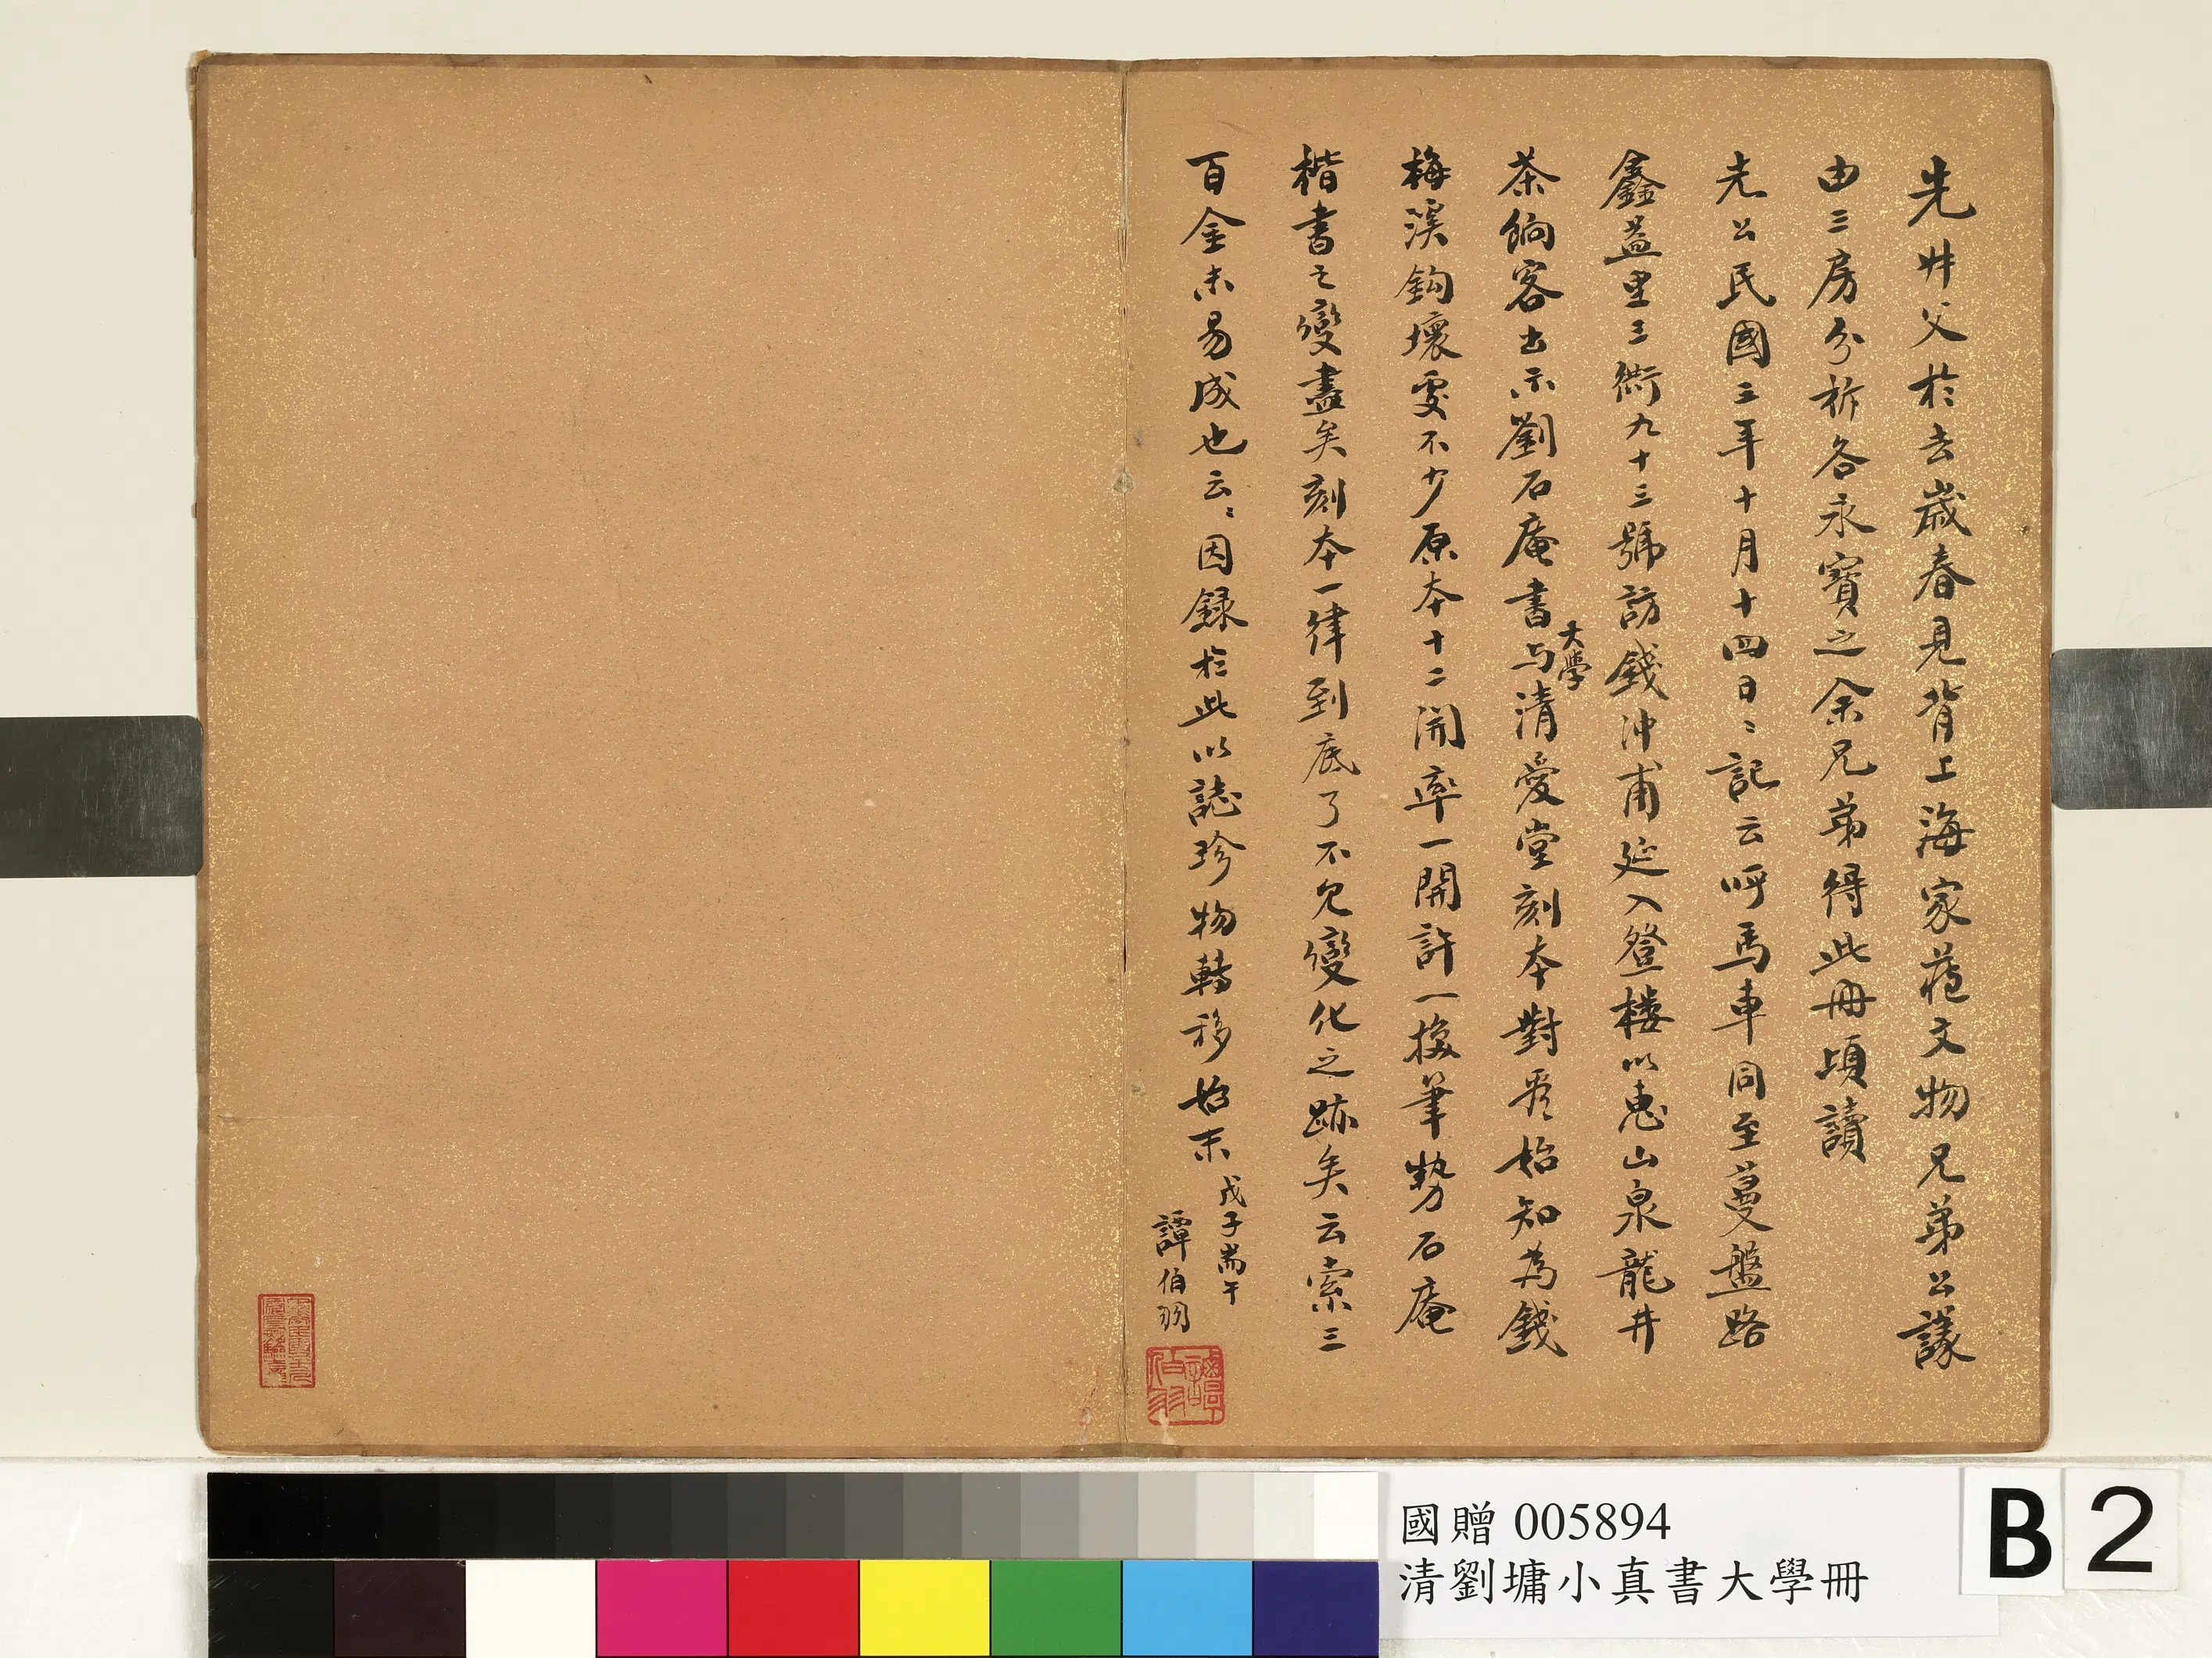 先叔父於去歲春見背上海家藏文物兄弟公議
由三房分析各永寶之余兄弟得此冊頃讀
先公民國三年十月十四日日記云呼馬車同至蔓盤路
鑫益里三衖九十三號訪錢沖甫延入登樓以惠山泉龍井
茶餉客出示劉石庵書大學与清愛堂刻本對看始知為錢
梅溪鈎壞處不少原本十二開率一開許一換筆勢石庵
楷書之變盡矣刻本一律到底了不見變化之跡矣云索三
百金未易成也云云因録於此以誌珍物轉移始末
戊子耑午
譚伯羽
譚伯羽
國贈 005894
清劉墉小真書大學冊
B 2